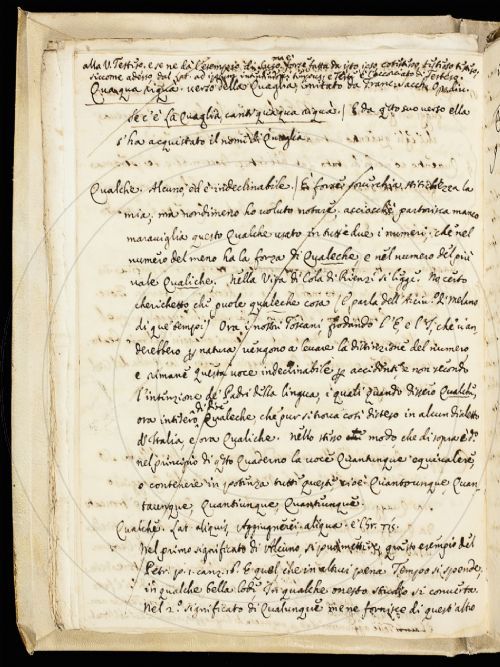 alla V. Testiso. e se ne dà l'esempio di
siccome adesso dal Lat. ad
Quaqua riqua. verso della Quaglia, imitato da Franc. Sacch. Op. div.
se c'è la Quaglia, canti quàqua riquà. / E da qsto suo verso ella
s'ha acquistato il nome di Quaglia.
Qualche. Alcuno, ed è indeclinabile. / È forse soverchia stitichezza la
mia, ma nondimeno ho voluto notare. acciocchè partorisca manco
maraviglia questo Qualche usato in tutt'e due i numeri. che nel
numero del meno ha la forza di Qualeche, e nel numero del più
vale Qualiche. Nella Vita di Cola di Rienzi si legge. No certo
cherichetto che vuole qualeche cosa / e parla dell' Arciv. di Melano
di que' tempi. / Ora i nostri Toscani rodando l'E, e l'I, che v'an
derebbero p natura, vengono a levare la distinzione del numero
e rimane questa voce indeclinabile p accidente e non secondo
l'intenzione de' Padri della lingua, i quali quando dissero Qualche,
ora intesero di dire Qualeche che pur si trova così disteso in alcun dialetto
d'Italia, e ora Qualiche. Nello stesso modo che di sopra è
nel principio di qsto Quaderno la voce Quantunque equivalere,
o contenere in potenza tutti questi cioè Quantounque, Quan-
taunque, Quantiunque, Quanteunque.
Qualche. Lat. aliquis. Aggiugnerei. aliqua. e l Gr. τις.
Nel primo significato di Alcuno, si può mettere questo esempio del
Petr. p. 1. canz. 16. E quel che in altrui pena Tempo si spende,
in qualche bella lode In qualche onesto studio si converta.
Nel 2.º significato di Qualunque me ne fornisce di quest' altro